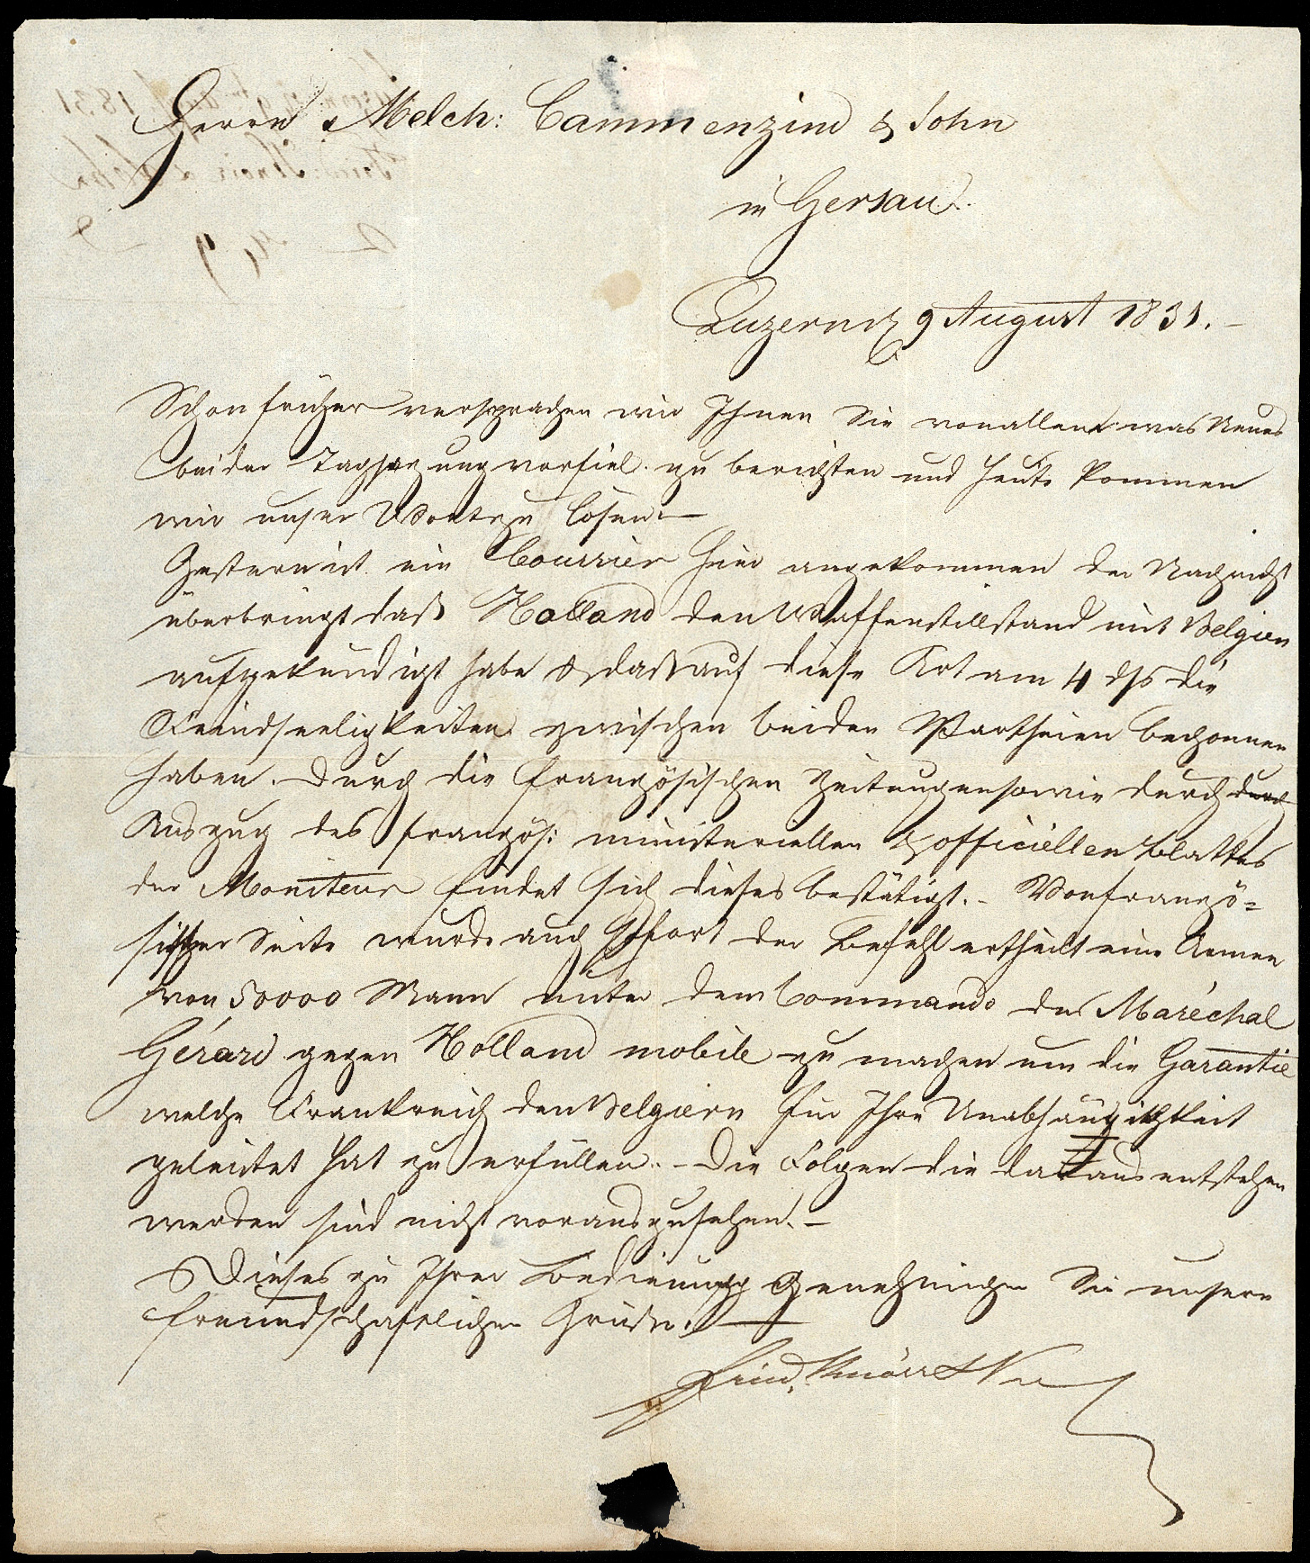 Herrn Melch: Cammenzind & Sohn
in Gersau.
Luzern d 9 August 1831.-
Schon früher versprachen wir Ihnen Sie von allem was Neues
bei der Tagsazung vorfiel zu berichten und heute kommen
wir unser Wort zu lösen.-
Gestern ist ein Courrier hier angekommen der Nachricht
überbringt daß Holland den Waffenstillstand mit Belgien
aufgekündigt habe & daß auf diese Art am 4 dſs die
Feindseeligkeiten zwischen beiden Partheien begonnen
haben. Durch die französischen Zeitungen sowie durch durch
Auszug des französ: ministeriellen & officiellen Blattes
der Moniteur findet sich dieses bestätigt.- Von franzö=
sischer Seite wurde auch sofort der Befehl ertheilt eine Armee
von 50000 Mann unter dem Commando des Maréchal
Gérard gegen Holland mobile zu machen um die Garantie
welche Frankreich den Belgiern für Ihre Unabhängigkeit
geleistet hat zu erfüllen.- Die Folgen die daraus entstehen
werden sind nicht vorauszusehen.-
Dieses zu Ihrer Bedienung genehmigen Sie unsere
freundschaftlichen Grüße.
Frid. Knörr & Sohn